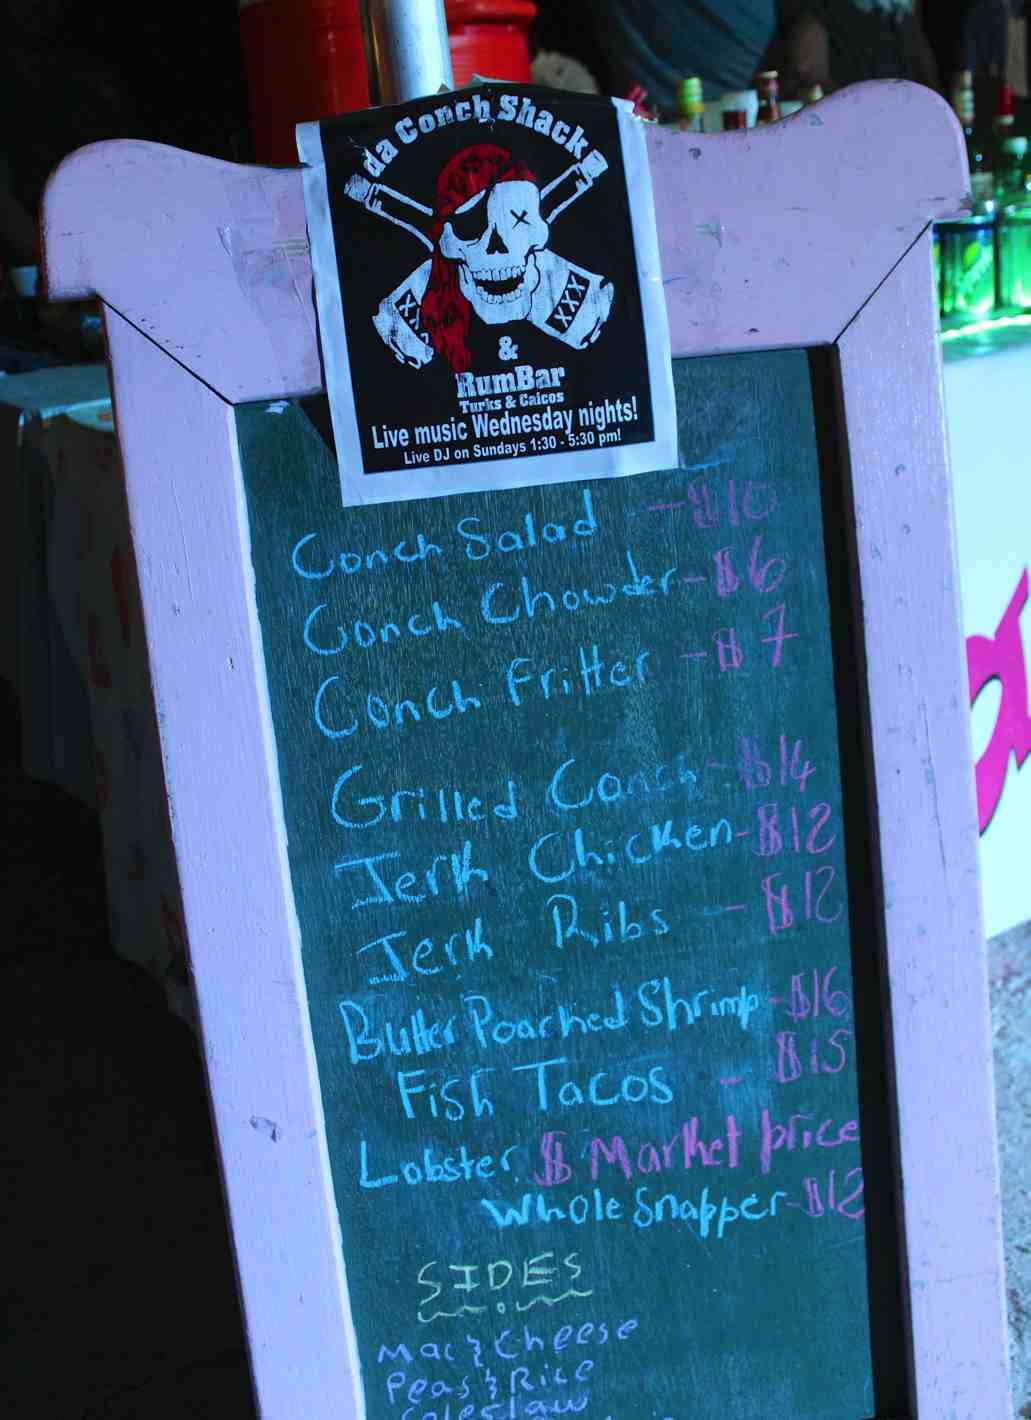 da Conch Shack
XXX
XXX
&
RumBar
Turks & Caicos
Live music Wednesday nights!
Live DJ on Sundays 1:30 - 5:30 pm!
Conch Salad - $10
Conch Chowder - $6
Conch Fritter - $7
Grilled Conch - $14
Jerk Chicken - $12
Jerk Ribs - $12
Butter Poached Shrimp - $16
Fish Tacos - $15
Lobster $ Market price
Whole Snapper - $12
SIDES
Mac & Cheese
Peas & Rice
Coleslaw